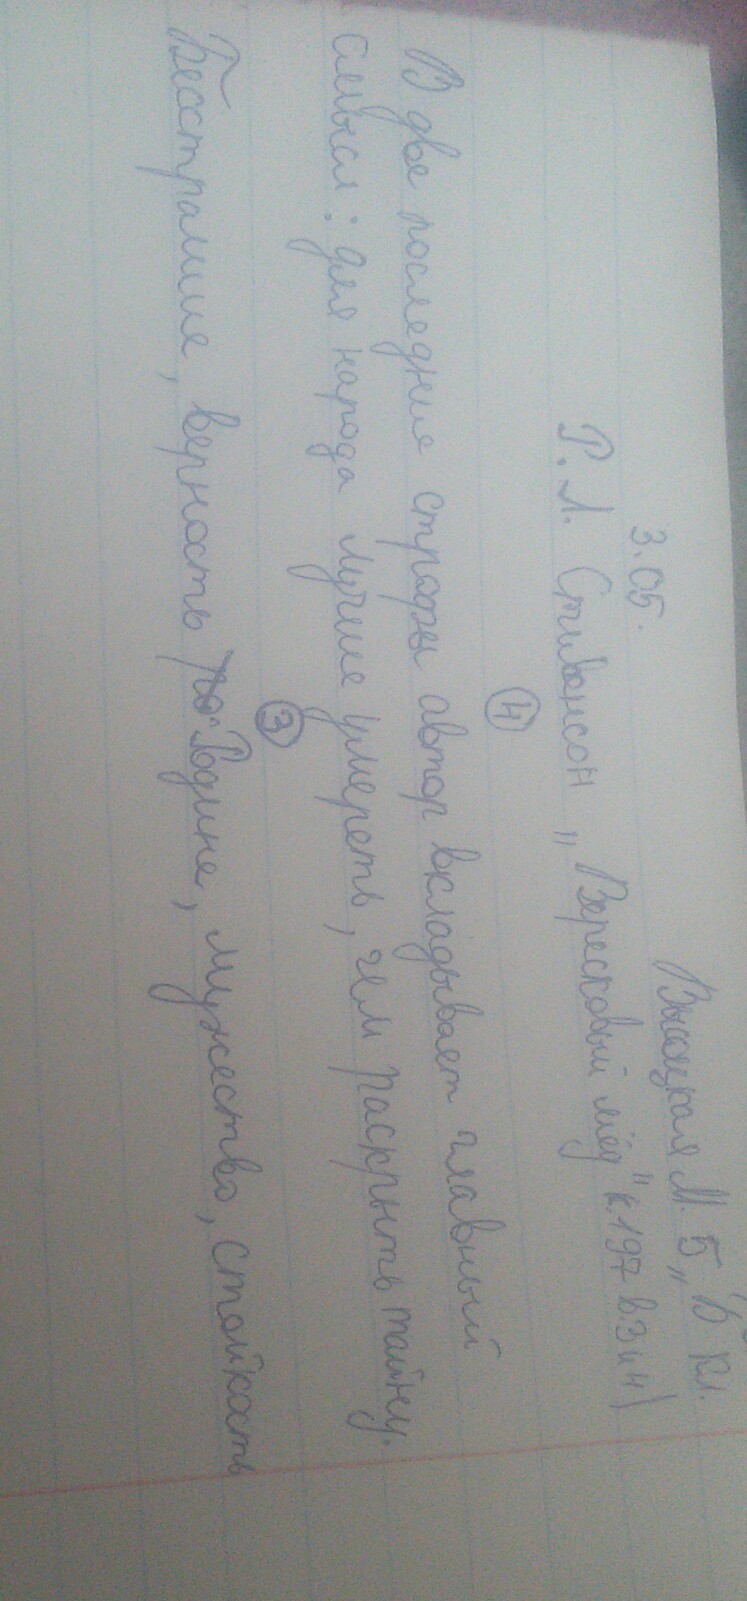 Высоцкая М. 5 „Б" кл.
3.05.
Р. Л. Стивенсон „Вересковый мёд" к.197 в.3 и 4)
④
В две последние строфы автор вкладывает главный
смысл: для народа лучше умереть, чем раскрыть тайну.
③
Бесстрашие, верность Родине, мужество, стойкость